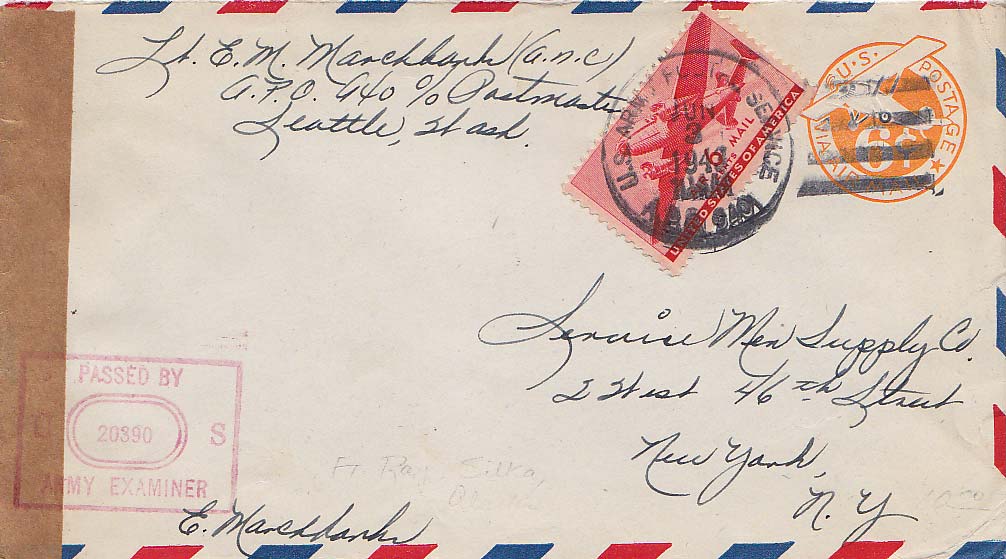 Lt. E. M. Marchbanks (A.N.C)
A.P.O. 940 c/o Postmaster
Seattle, Wash.
U.S. ARMY POSTAL SERVICE
JUN
3
1943
A.P.O. 940
10 CENTS AIR MAIL
UNITED STATES OF AMERICA
U.S. POSTAGE
6¢
VIA AIR MAIL
Service Men Supply Co.
2 West 46th Street
New York,
N. Y
PASSED BY
U 20390 S
ARMY EXAMINER
Ft Ray, Sitka,
E. Marchbanks